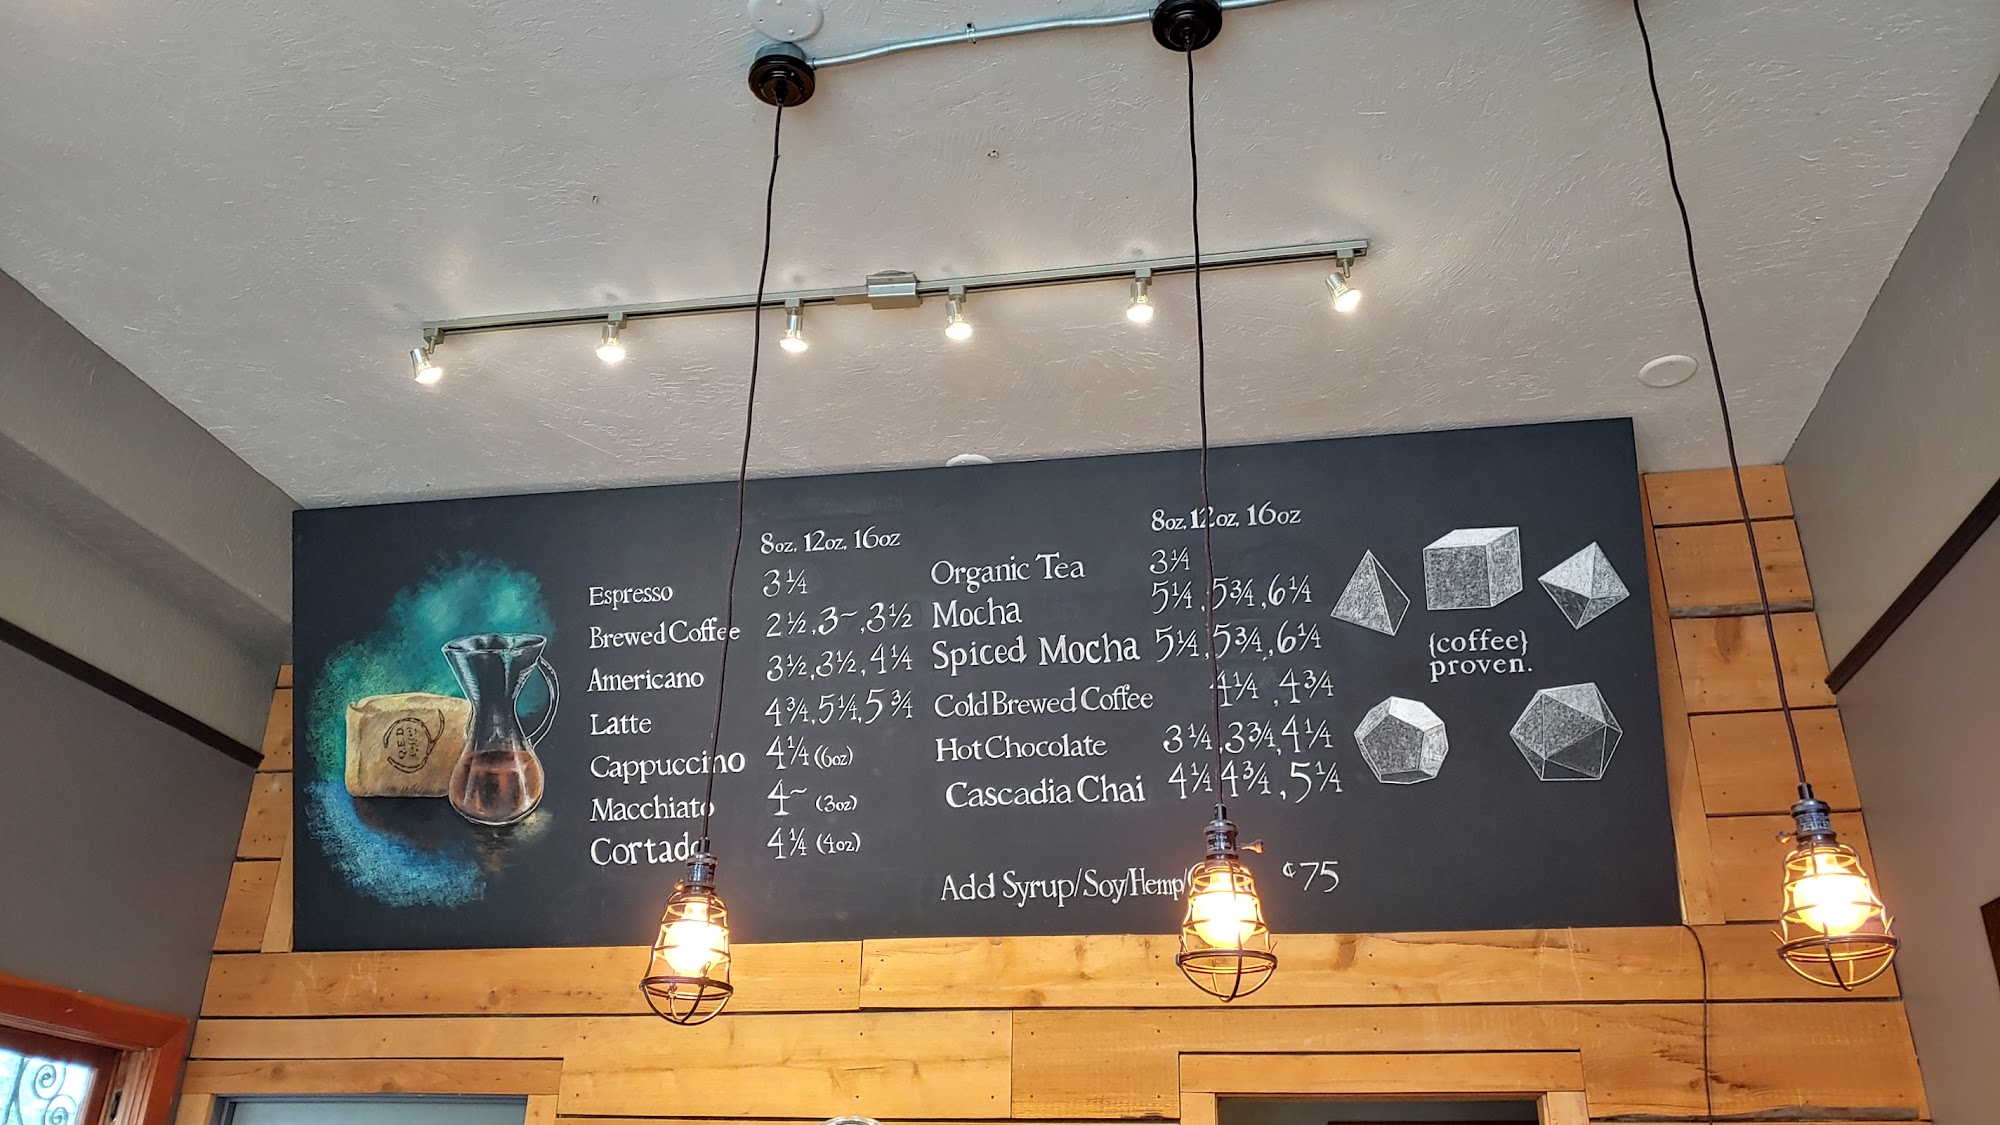 Q.E.D.
Coffee
8oz. 12oz. 16oz
Espresso 3¼
Brewed Coffee 2½, 3~, 3½
Americano 3½, 3½, 4¼
Latte 4¾, 5¼, 5¾
Cappuccino 4¼ (6oz)
Macchiato 4~ (3oz)
Cortado 4¼ (4oz)
8oz. 12oz. 16oz
Organic Tea 3¼
Mocha 5¼, 5¾, 6¼
Spiced Mocha 5¼, 5¾, 6¼
Cold Brewed Coffee 4¼, 4¾
Hot Chocolate 3¼, 3¾, 4¼
Cascadia Chai 4¼ 4¾, 5¼
Add Syrup/Soy/Hemp/ ¢75
{coffee}
proven.